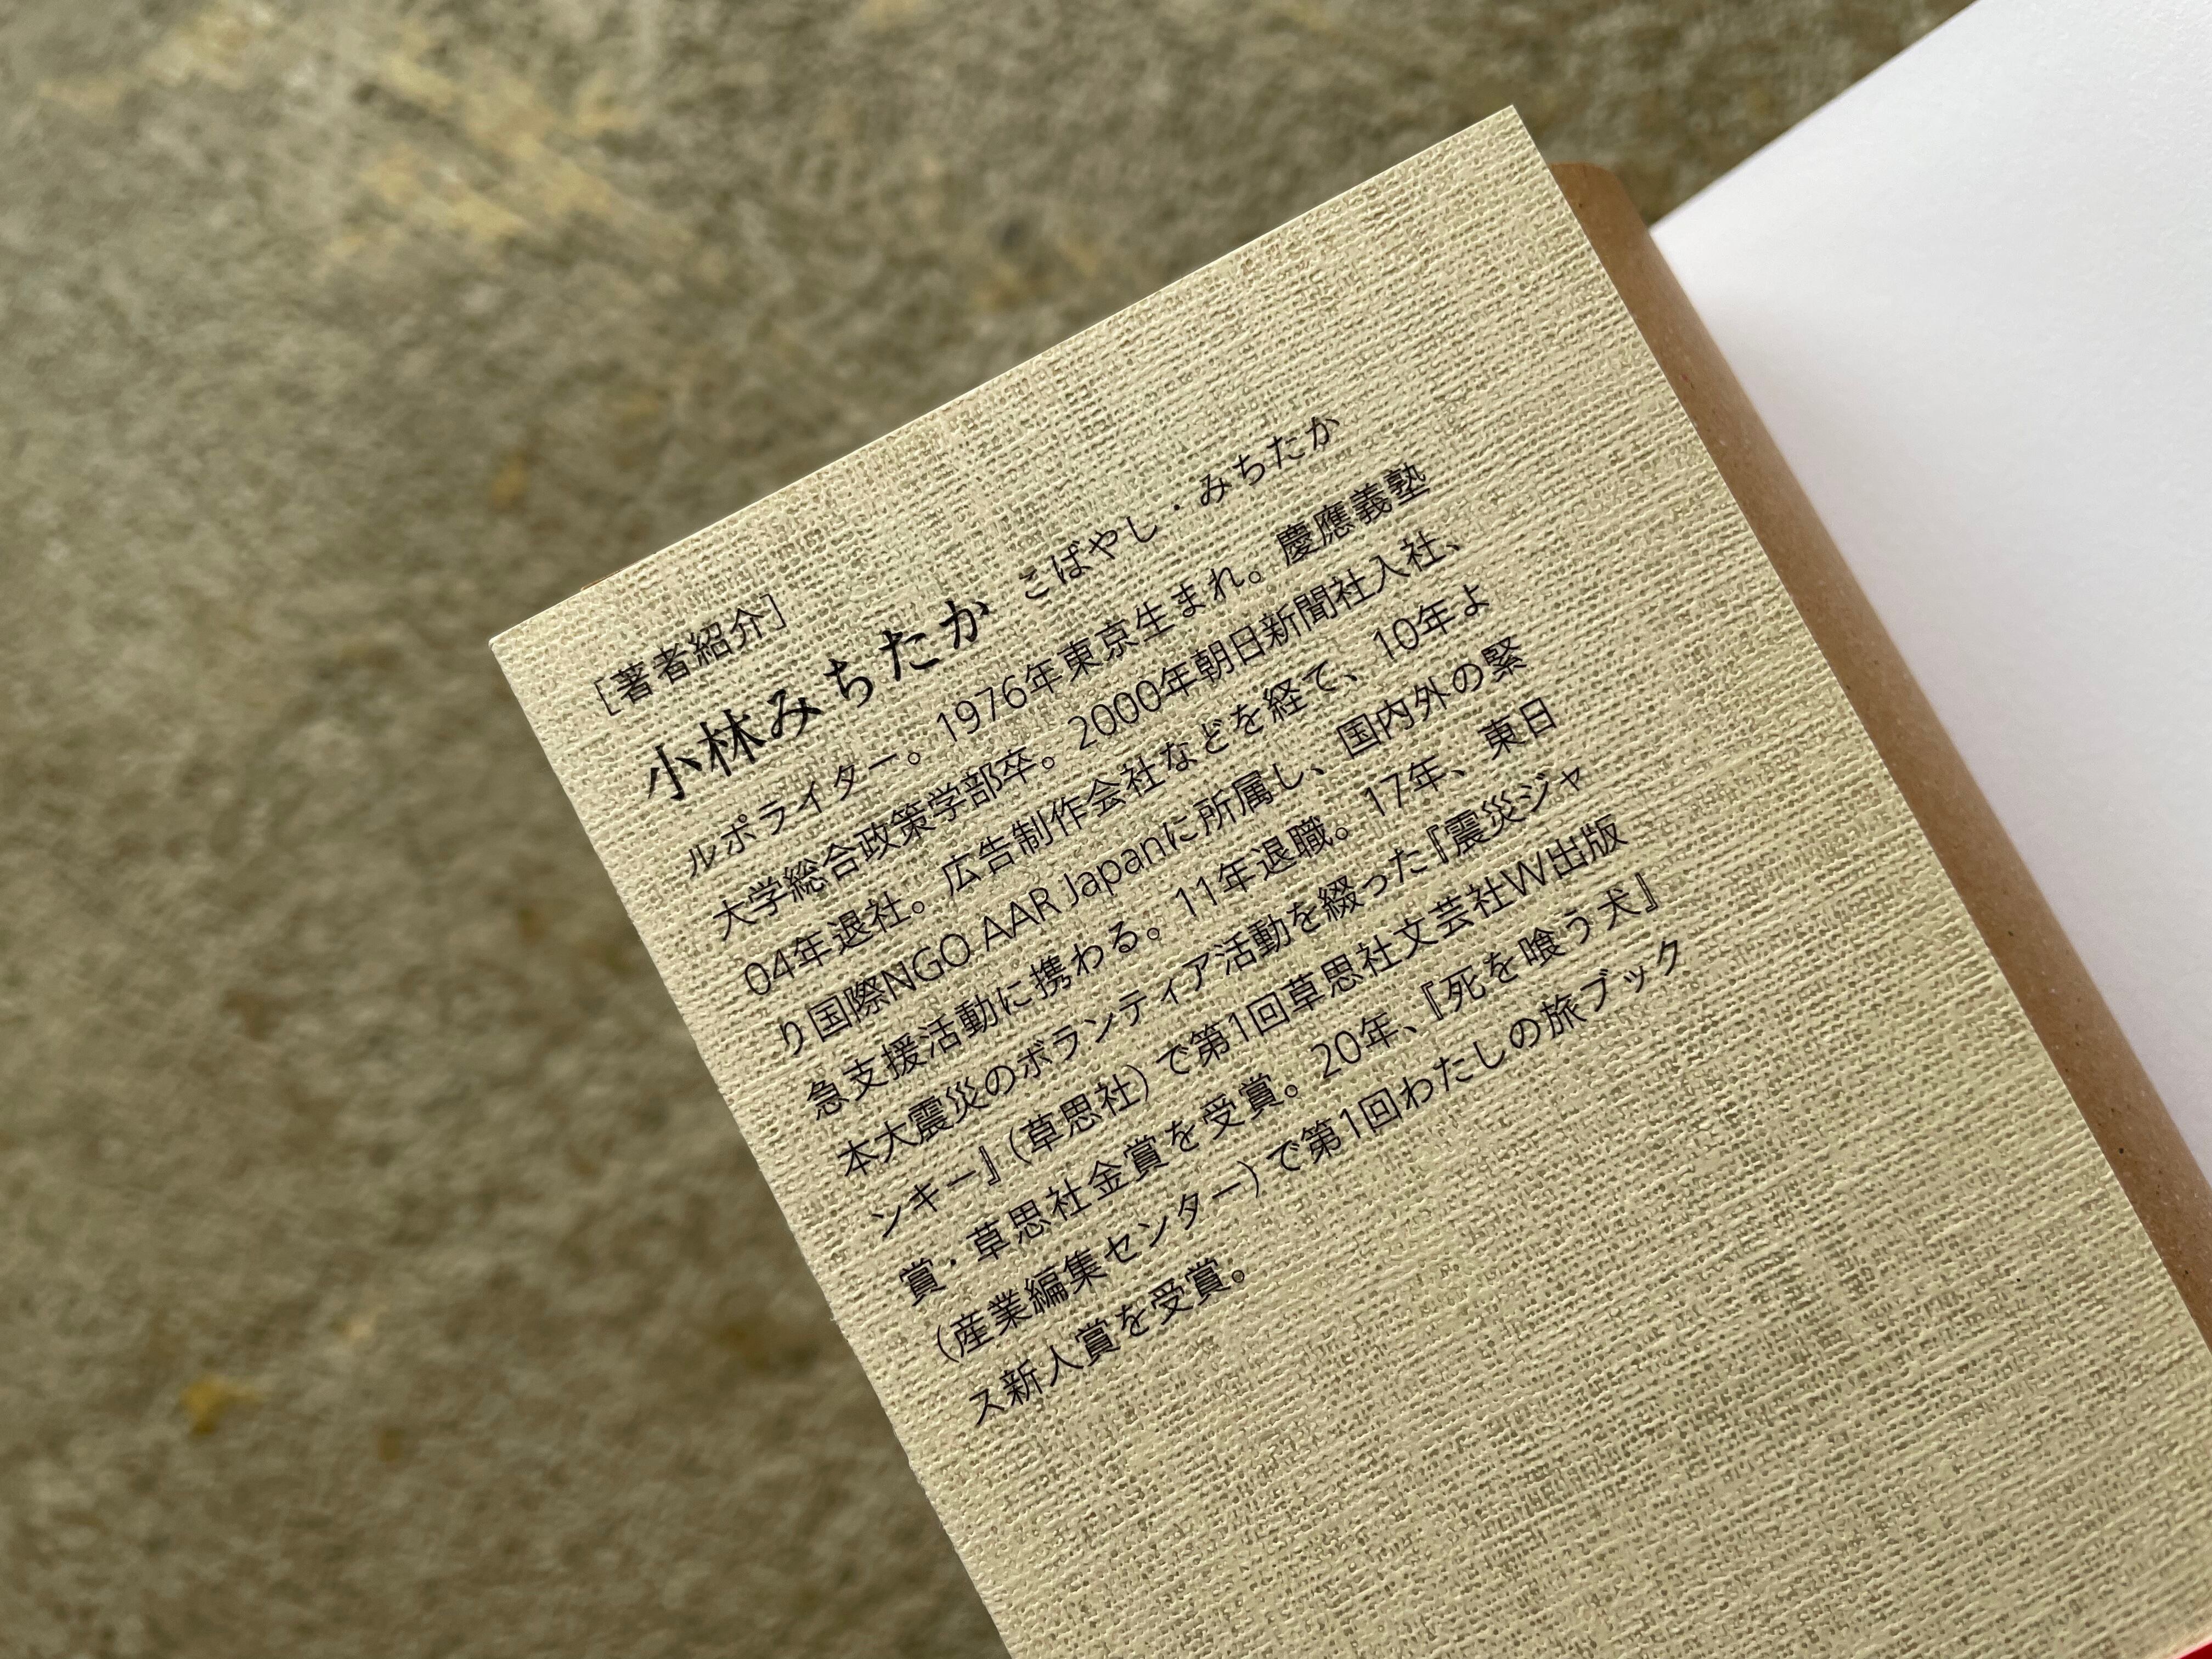 ［著者紹介］
小林みちたか こばやし・みちたか
ルポライター。1976年東京生まれ。慶應義塾
大学総合政策学部卒。2000年朝日新聞社入社、
04年退社。広告制作会社などを経て、10年よ
り国際NGO AAR Japanに所属し、国内外の緊
急支援活動に携わる。11年退職。17年、東日
本大震災のボランティア活動を綴った『震災ジャ
ンキー』（草思社）で第1回草思社文芸社W出版
賞・草思社金賞を受賞。20年、『死を喰う犬』
（産業編集センター）で第1回わたしの旅ブック
ス新人賞を受賞。